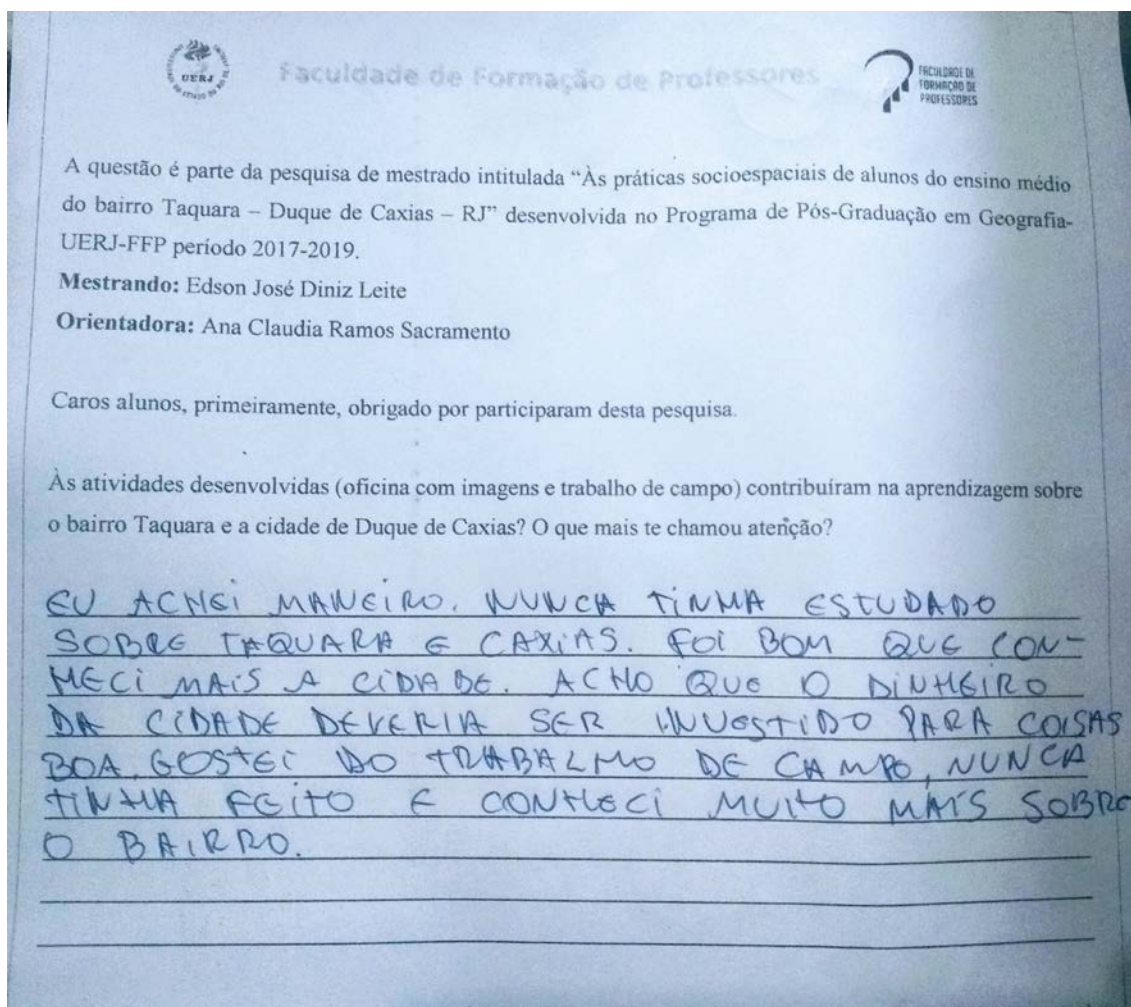 UERJ
Faculdade de Formação de Professores
FACULDADE DE
FORMAÇÃO DE
PROFESSORES
A questão é parte da pesquisa de mestrado intitulada “Às práticas socioespaciais de alunos do ensino médio
do bairro Taquara – Duque de Caxias – RJ” desenvolvida no Programa de Pós-Graduação em Geografia-
UERJ-FFP período 2017-2019.
Mestrando: Edson José Diniz Leite
Orientadora: Ana Claudia Ramos Sacramento
Caros alunos, primeiramente, obrigado por participaram desta pesquisa.
Às atividades desenvolvidas (oficina com imagens e trabalho de campo) contribuíram na aprendizagem sobre
o bairro Taquara e a cidade de Duque de Caxias? O que mais te chamou atenção?
EU ACHEI MANEIRO. NUNCA TINHA ESTUDADO
SOBRE TAQUARA E CAXIAS. FOI BOM QUE CON-
HECI MAIS A CIDADE. ACHO QUE O DINHEIRO
DA CIDADE DEVERIA SER INVESTIDO PARA COISAS
BOA. GOSTEI DO TRABALHO DE CAMPO, NUNCA
TINHA FEITO E CONHECI MUITO MAIS SOBRE
O BAIRRO.